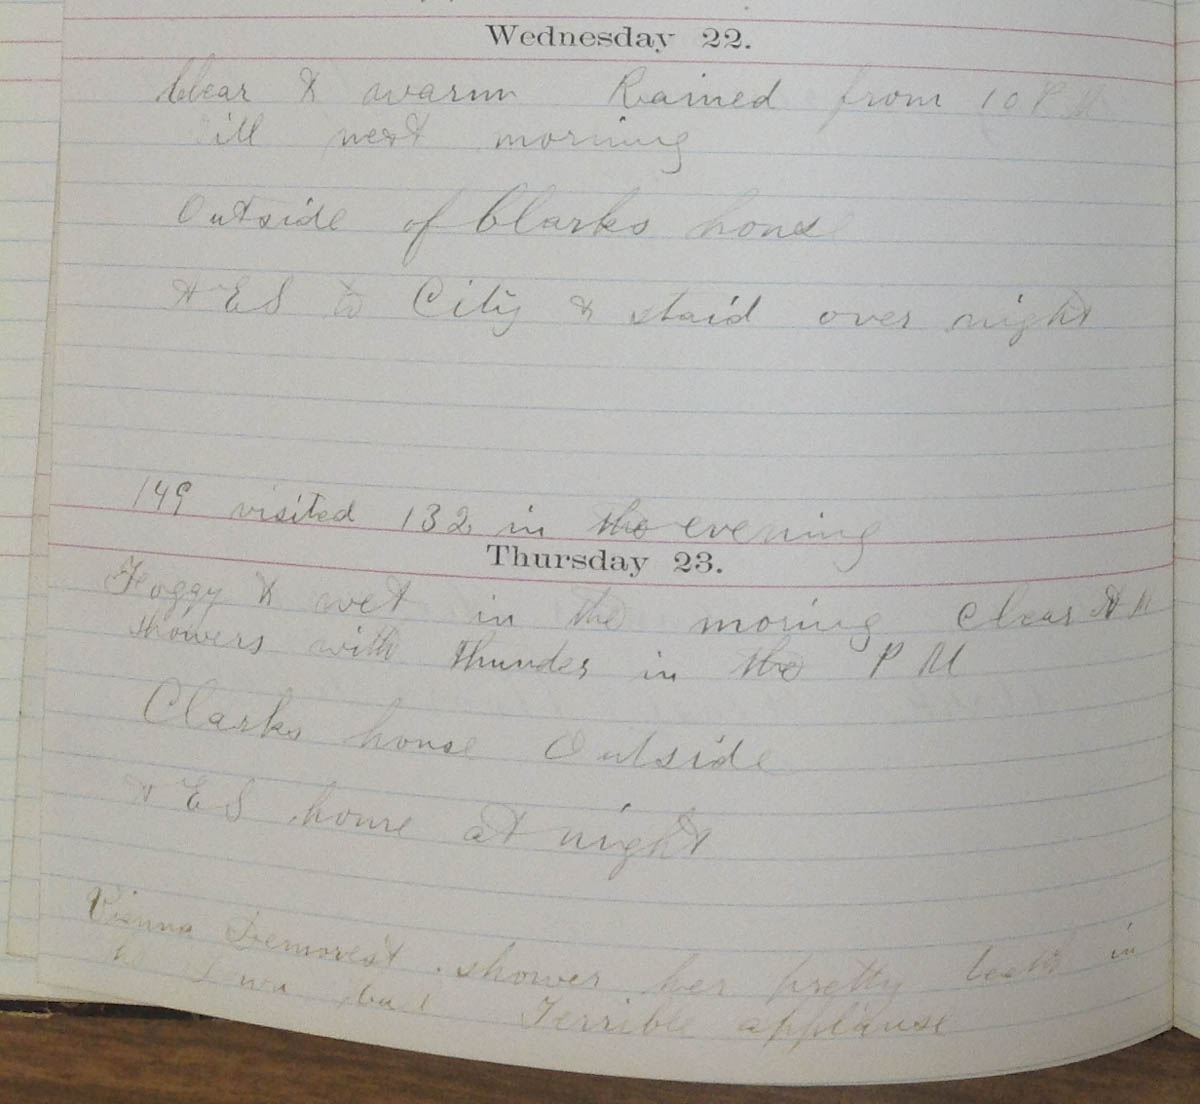 Wednesday 22.
Clear & warm Rained from 10 P M
till next morning
Outside of Clarks house
A E S to City & staid over night
149 visited 132 in the evening
Thursday 23.
Foggy & wet in the moring Clear A M
showers with thunder in the P M
Clarks house Outside
A E S home at night
Vienna Demorest shower her pretty teeth in
Terrible applause